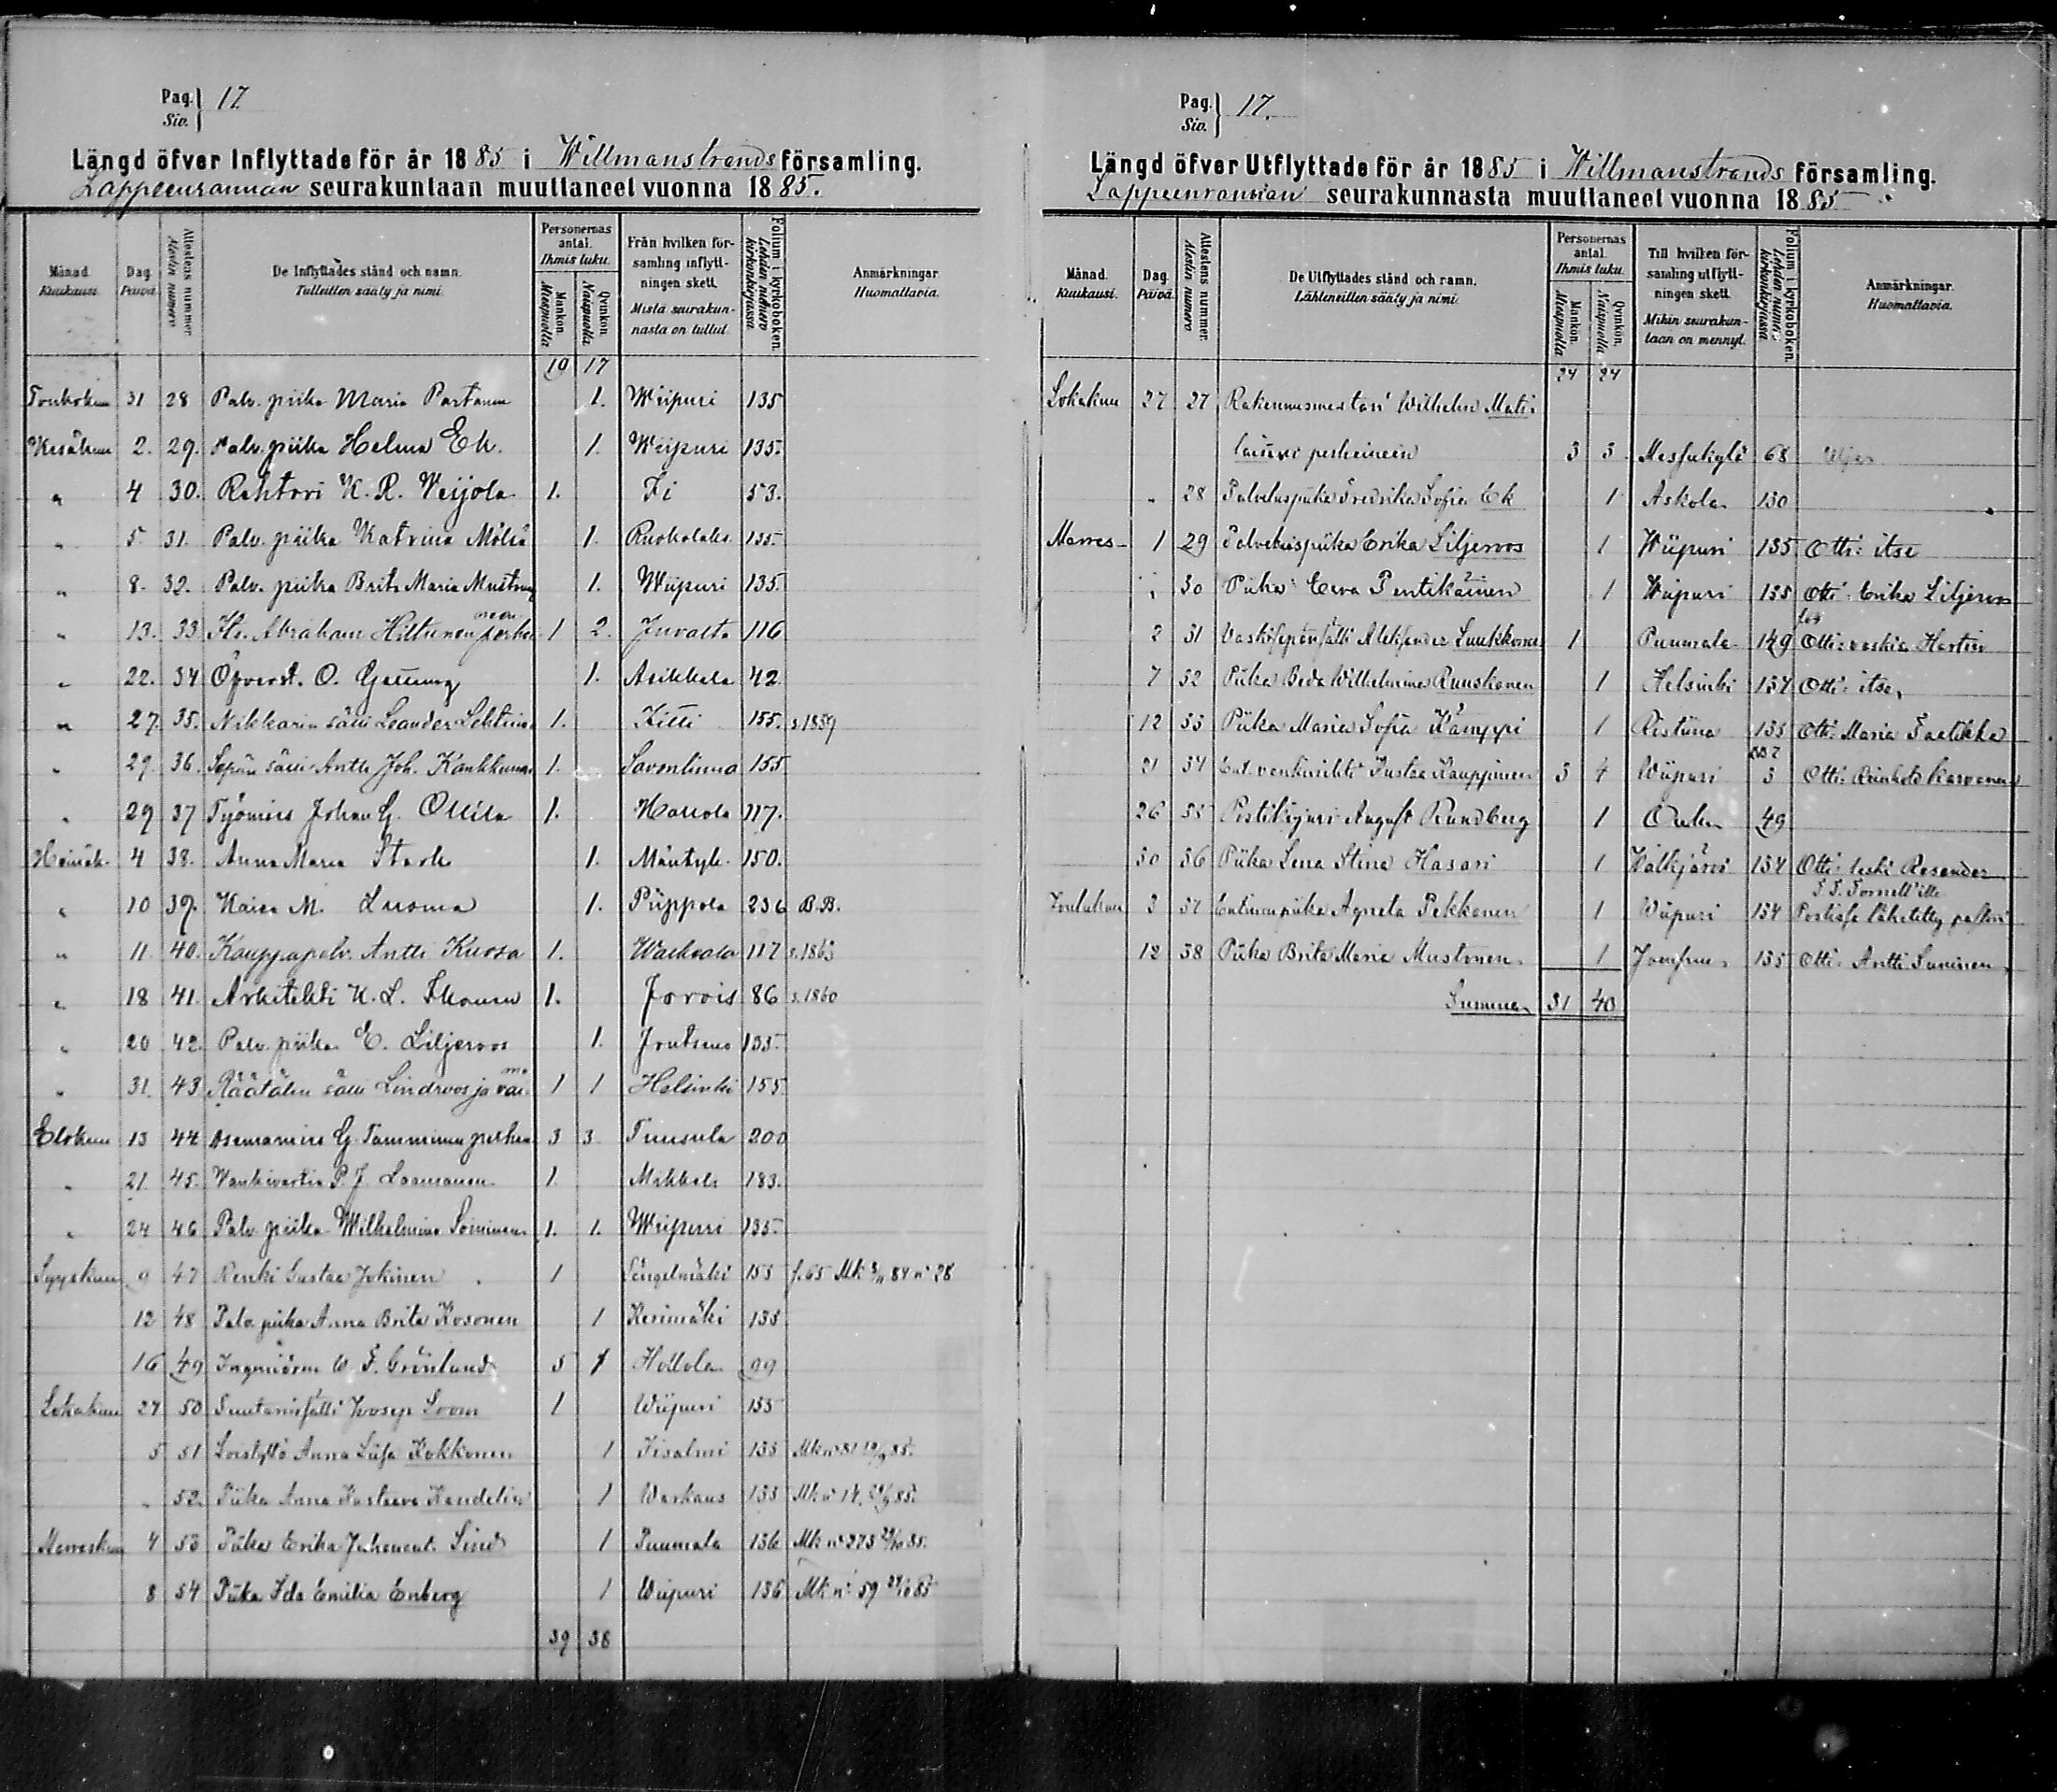 Pag. Siv. } 17.
Längd öfver Inflyttade för år 1885 i Willmanstrands församling.
Lappeenrannan seurakuntaan muuttaneet vuonna 1885.
Månad. Kuukausi. | Dag. Päivä. | Attestens nummer. Alestin numero | De Inflyttades stånd och namn. Tulleitten sääty ja nimi. | Personernas antal. Ihmis luku. Mankön. Miespuolia | Qvinkön. Naispuolia | Från hvilken församling inflyttningen skett. Mistä seurakunnasta on tullut. | Folium i kyrkoboken. Lehden numero kirkonkirjassa | Anmärkningar. Huomattavia.
19 17
Toukokuu 31 28 Palv. piika Maria Partanen 1. Wiipuri 135
Kesäkuu 2. 29. Palv. piika Helma Ek. 1. Wiipuri 135.
" 4 30. Rehtori K. R. Weijola 1. Ii 53.
" 5. 31. Palv. piika Katrina Mölsä 1. Ruokolaks. 135.
" 8. 32. Palv. piika Brita Maria 1. Wiipuri 135.
" 13. 33. Abraham Hiltunen perhe 1 2. Juvalta 116
" 22. 34 Öfverst. O. 1. Asikkala 42
" 27. 35. Nikkarin sälli Leander 1. Kitti 155. s. 1859
" 29. 36. Sepän sälli Antti Joh. 1. Savonlinna 155
" 29 37 Työmies Johan G. Ollila 1. Hollola 117.
Heinäk. 4 38. Anna Maria Stark 1. Mäntyh. 150.
" 10 39. Kaisa M. Lusma 1. Piippola 236 B.B.
" 11 40. Kauppapalv. Antti Kuosa 1. 117 s. 1863
" 18 41. Arkitekti K. L. 1. Jorois 86 s. 1860
" 20 42. Palv. piika E. Liljeroos 1. Joutseno 135.
" 31. 43. Räätälin sälli Lindroos ja vai 1 1 Helsinki 155.
Elokuu 13 44. Asemamies G. Tamminen perhe 3 3 Tuusula 200
" 21. 45. Vankivartia P. J. Laamanen 1. Mikkeli 183.
" 24 46 Palv. piika Wilhelmina Soininen 1. 1. Wiipuri 135.
Syyskuu 9 47 Renki Gustaa Jokinen 1 Längelmäki 155 f. 65 Mk 3/11 84 n° 28
12 48 Palv. piika Anna Brita Kosonen 1 Kerimäki 135
16 49 W. F. Grönlund 5 1 Hollola 99
Lokakuu 27 50 Suutarisälli Joosep Loom 1 Wiipuri 155
5 51 Anna Liisa Kokkonen 1 Iisalmi 135
" 52. Piika Anna Kustaava Kandelin 1 Warkaus 135
Marraskuu 4 53 Piika Erika Lind 1 Puumala 136
8 54 Piika Ida Emilia Enberg 1 Wiipuri 136 Mk n° 59
39 38
Pag. Siv. } 17.
Längd öfver Utflyttade för år 1885 i Willmanstrands församling.
Lappeenrannan seurakunnasta muuttaneet vuonna 1885.
Månad. Kuukausi. | Dag. Päivä. | Attestens nummer. Alestin numero | De Utflyttades stånd och namn. Lähteneitten sääty ja nimi. | Personernas antal. Ihmis luku. Mankön. Miespuolia | Qvinkön. Naispuolia | Till hvilken församling utflyttningen skett. Mihin seurakuntaan on mennyt. | Folium i kyrkoboken. Lehden num:o kirkonkirjassa | Anmärkningar. Huomattavia.
24 24
Lokakuu 27 27 Rakennusmestari Wilhelm Mati
laisen perheineen 3 3 Messukylä 68
" 28 Palveluspiika Fredrika Sofia Ek 1 Askola 130
Marras- 1 29 Palveluspiika Erika Liljeroos 1 Wiipuri 135 Otti: itse
" 30 Piika Eeva Pentikäinen 1 Wiipuri 135 Otti: Erika Liljeroos
2 31 Vaskisepänsälli Aleksander Luukkonen 1 Puumala 149 Otti:
7 32 Piika Beda Wilhelmina Ruuskonen 1 Helsinki 134 Otti: itse,
12 33 Piika Maria Sofia Kämppi 1 Ristiina 135 Otti: Maria
21 34 Kustaa Kauppinen 3 4 Wiipuri 3 Otti:
26 35 Postiljooni August Rundberg 1 Oulu 49
30 36 Piika Lena Stina Hasari 1 Walkjärvi 134 Otti: leski Rosander
Joulukuu 3 37 Entinen piika Agneta Pekkonen 1 Wiipuri 134 Postissa lähetetty pastori
12 38 Piika Brita Maria Mustonen 1 Joutseno 135 Otti: Antti Suninen
Summa 31 40